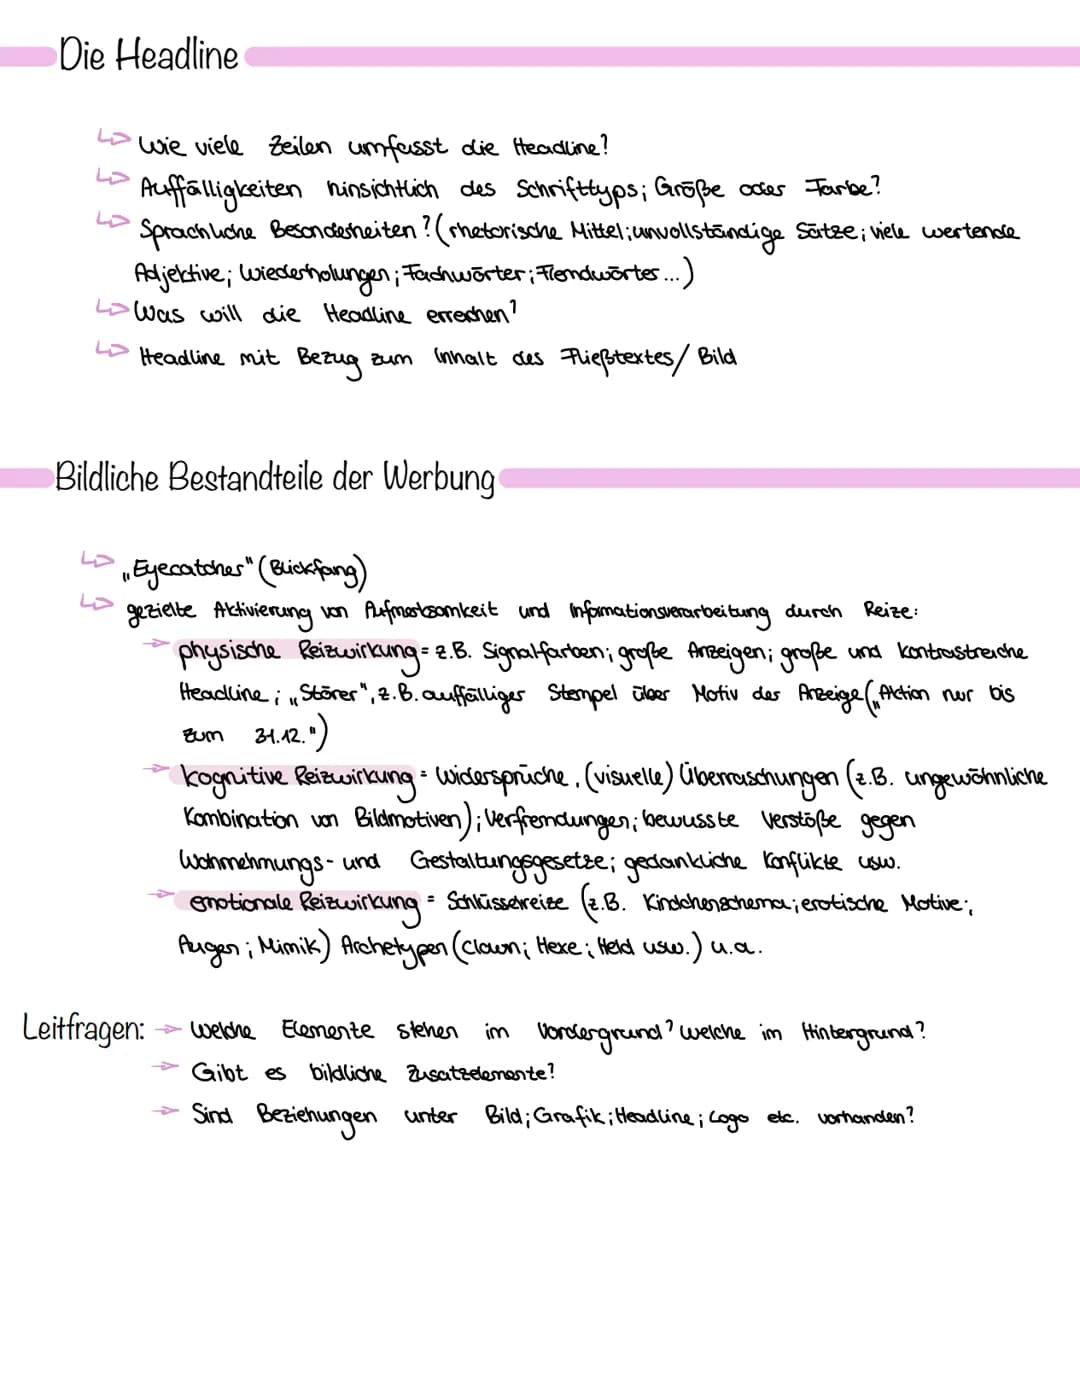 Die Headline
Wie viele Zeilen umfasst die Headline?
Auffälligkeiten hinsichtlich des Schrifttyps; Größe oder Farbe?
Sprachliche Besonderheiten? (rhetorische Mittel; unvollständige Sätze; viele wertende
Adjektive; Wiederholungen; Fachwörter; Fremdwörter ...)
Was will die Headline erreichen?
Headline mit Bezug zum Inhalt des Fließtextes/ Bild
Bildliche Bestandteile der Werbung
„Eyecatcher" (Blickfang)
gezielte Aktivierung von Aufmerksamkeit und Informationsverarbeitung durch Reize:
physische Reizwirkung = z.B. Signalfarben; große Anzeigen; große und kontrastreiche
Headline; „Störer", z.B. auffälliger Stempel über Motiv der Anzeige („Aktion nur bis
zum 31.12.")
kognitive Reizwirkung = Widersprüche, (visuelle) Überraschungen (z.B. ungewöhnliche
Kombination von Bildmotiven); Verfremdungen; bewusste Verstöße gegen
Wahrnehmungs- und Gestaltungsgesetze; gedankliche Konflikte usw.
emotionale Reizwirkung = Schlüsselreize (z.B. Kindchenschema; erotische Motive;
Augen; Mimik) Archetypen (Clown; Hexe; Held usw.) u.a.
Leitfragen: Welche Elemente stehen im Vordergrund? Welche im Hintergrund?
Gibt es bildliche Zusatzelemente?
Sind Beziehungen unter Bild; Grafik; Headline; Logo etc. vorhanden?